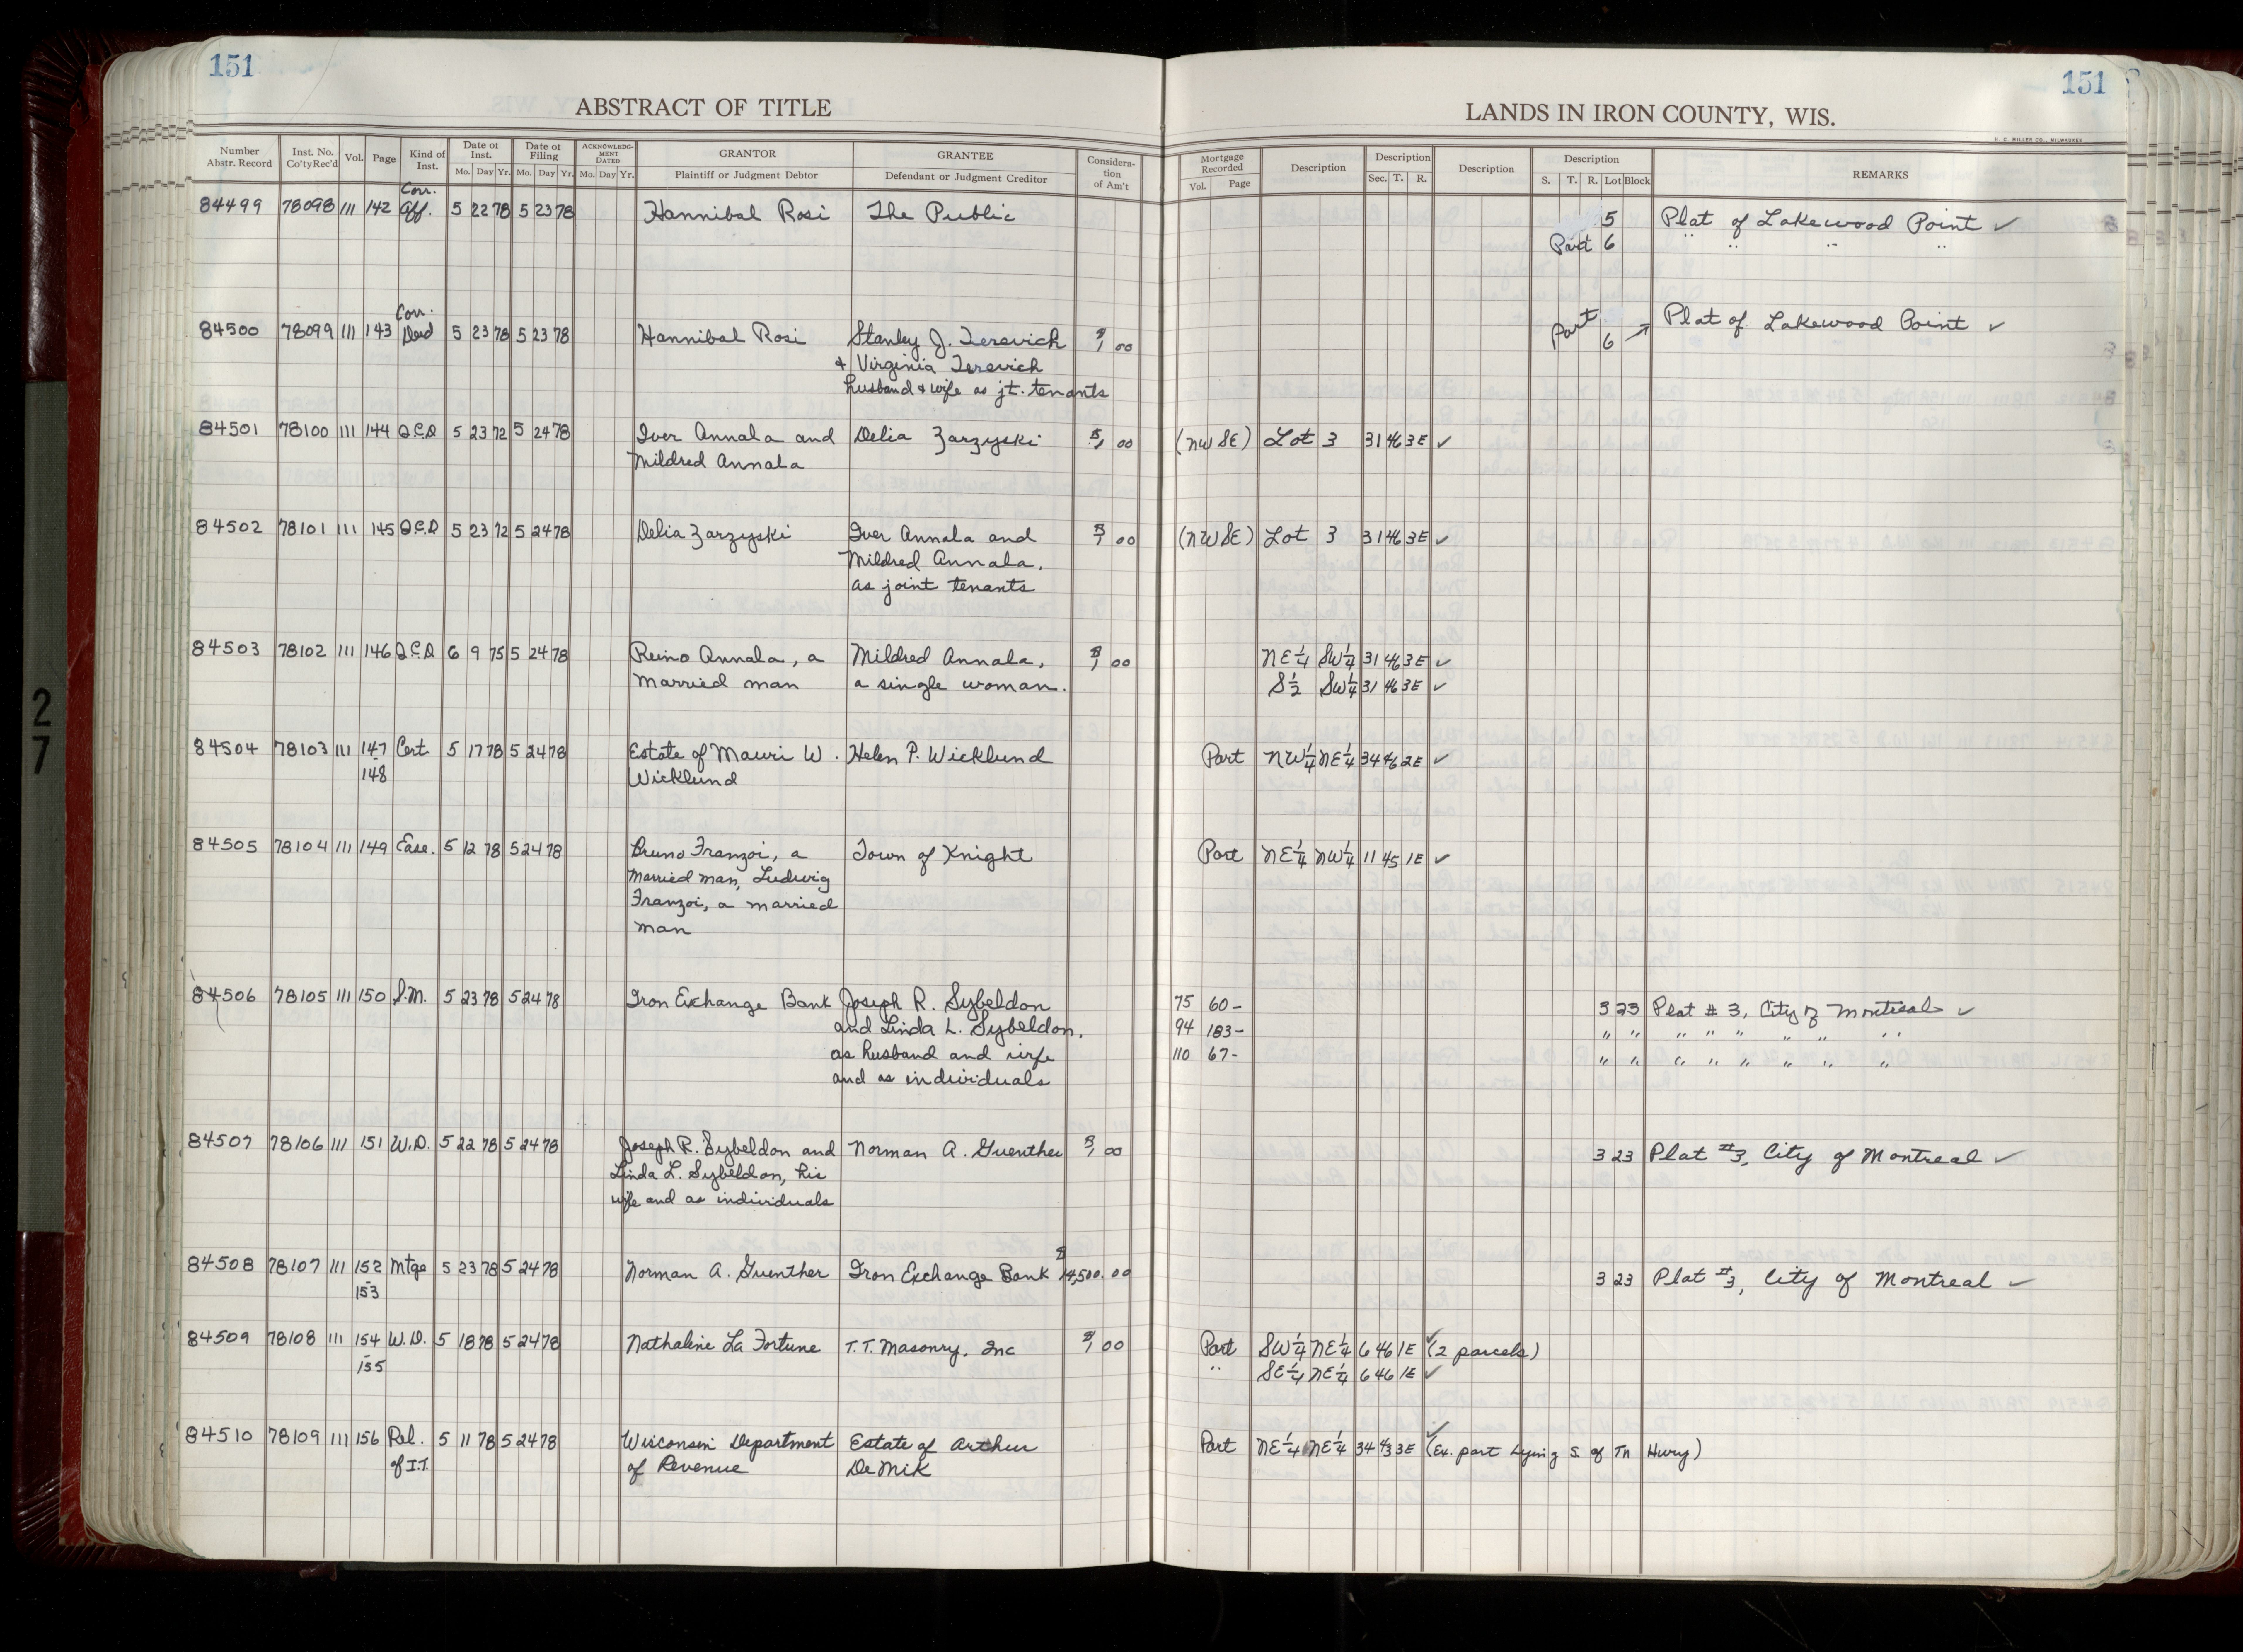 151
151
ABSTRACT OF TITLE
LANDS IN IRON COUNTY, WIS.
H. C. MILLER CO., MILWAUKEE
Number Abstr. Record Inst. No. Co'ty Rec'd Vol. Page Kind of Inst. Date of Inst. Mo. Day Yr. Date of Filing Mo. Day Yr. ACKNOWLEDGMENT DATED Mo. Day Yr. GRANTOR Plaintiff or Judgment Debtor GRANTEE Defendant or Judgment Creditor Consideration of Am't Mortgage Recorded Vol. Page Description Description Sec. T. R. Description Description S. T. R. Lot Block REMARKS
Corr.
84499 78098 111 142 Aff. 5 22 78 5 23 78 Hannibal Rosi The Public 5 Plat of Lakewood Point ✓
Part 6 " " " "
Corr.
84500 78099 111 143 Deed 5 23 78 5 23 78 Hannibal Rosi Stanley J. Terevich $1 00 Part 6 Plat of Lakewood Point ✓
& Virginia Terevich
husband & wife as jt. tenants
84501 78100 111 144 Q.C.D 5 23 72 5 24 78 Iver Annala and Delia Zarzyski $1 00 (NW SE) Lot 3 31 46 3E ✓
Mildred Annala
84502 78101 111 145 Q.C.D 5 23 72 5 24 78 Delia Zarzyski Iver Annala and $1 00 (NW SE) Lot 3 31 46 3E ✓
Mildred Annala,
as joint tenants
84503 78102 111 146 Q.C.D 6 9 75 5 24 78 Reino Annala, a Mildred Annala, $1 00 NE¼ SW¼ 31 46 3E ✓
married man a single woman. S½ SW¼ 31 46 3E ✓
84504 78103 111 147 Cert. 5 17 78 5 24 78 Estate of Mauri W. Helen P. Wicklund Part NW¼ NE¼ 34 46 2E ✓
-148 Wicklund
84505 78104 111 149 Ease. 5 12 78 5 24 78 Bruno Franzoi, a Town of Knight Part NE¼ NW¼ 11 45 1E ✓
Married man, Ludwig
Franzoi, a married
man
84506 78105 111 150 S.M. 5 23 78 5 24 78 Iron Exchange Bank Joseph R. Sybeldon 75 60- 3 23 Plat # 3, City of Montreal ✓
and Linda L. Sybeldon, 94 183- " " " " " " " "
as husband and wife 110 67- " " " " " " " "
and as individuals
84507 78106 111 151 W.D. 5 22 78 5 24 78 Joseph R. Sybeldon and Norman A. Guenther $1 00 3 23 Plat #3, City of Montreal ✓
Linda L. Sybeldon, his
wife and as individuals
84508 78107 111 152 Mtge 5 23 78 5 24 78 Norman A. Guenther Iron Exchange Bank $14,500.00 3 23 Plat #3, City of Montreal ✓
-153
84509 78108 111 154 W.D. 5 18 78 5 24 78 Nathaline La Fortune T.T. Masonry, Inc $1 00 Part SW¼ NE¼ 6 46 1E ✓ (2 parcels)
-155 " SE¼ NE¼ 6 46 1E ✓
84510 78109 111 156 Rel. 5 11 78 5 24 78 Wisconsin Department Estate of Arthur Part NE¼ NE¼ 34 43 3E ✓ (Ex. part lying S. of Tn Hwy)
of I.T. of Revenue De Mik
27